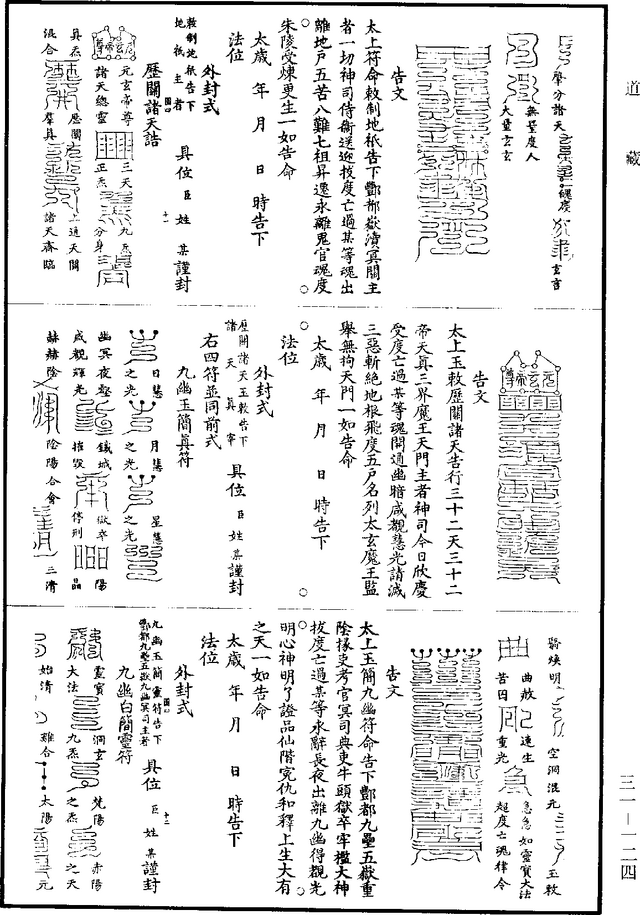 道藏
三一—一二四
擘分諸天
魂度
玄言
無量度人
大量玄玄
告文
太上符命敕制地祇告下酆都嶽瀆冥關主
者一切神司侍衛送迎拔度亡過某等魂出
離地户五苦八難七祖昇遷永離鬼官魂度
朱陵受煉更生一如告命
太歲 年 月 日 時告下
法位
外封式
敕制地祇告下
地祇主者
具位 臣 姓 某謹封
歷關諸天誥
十一
元玄帝尊
三天
九炁
諸天總靈
正炁
分身
真炁
歷關
上通天關
混合
羣真
諸天齋臨
告文
太上玉敕歷關諸天告行三十二天三十二
帝天真三界魔王天門主者神司今日欣慶
受度亡過某等魂開通幽暗咸覩慧光請滅
三惡斬絕地根飛度五户名列太玄魔王監
舉無拘天門一如告命
太歲 年 月 日 時告下
法位
外封式
歷關諸天玉敕告下
諸天真宰
具位 臣 姓 某謹封
右四符並同前式
九幽玉簡真符
日慧
月慧
星慧
之光
之光
之光
幽冥夜壑
鐵城
獄卒
陽
咸覩輝光
摧毀
停刑
晶
赫赫陰
陰陽合會
三清
煥明
空洞混元
玉敕
曲赦
遠生
急急如靈寶大法
苦囚
重光
超度亡魂律令
告文
太上玉簡九幽符命告下酆都九壘五嶽重
陰掾吏考官冥司典吏牛頭獄卒牢檻大神
拔度亡過某等永辭長夜出離九幽得覩光
明心神明了證品仙階寃仇和釋上生大有
之天一如告命
太歲 年 月 日 時告下
法位
外封式
九幽玉簡靈符告下
酆都九壘五嶽九幽冥司主者
具位 臣 姓 某謹封
九幽白簡靈符
十二
靈寶
洞玄
梵陽
赤陽
大法
九炁
之炁
之天
始清
難合
太陽
元